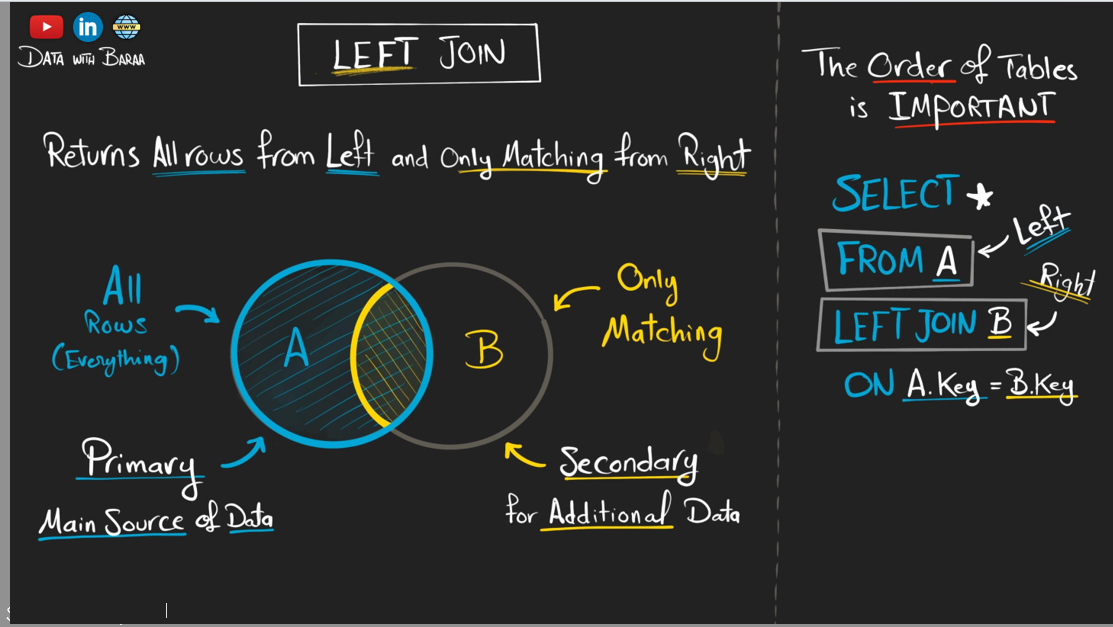 in
WWW
DATA WITH BARAA
LEFT JOIN
Returns All rows from Left and Only Matching from Right
All
Rows
(Everything)
A
B
Only
Matching
Primary
Main Source of Data
Secondary
for Additional Data
The Order of Tables
is IMPORTANT
SELECT *
FROM A
Left
Right
LEFT JOIN B
ON A.Key = B.Key